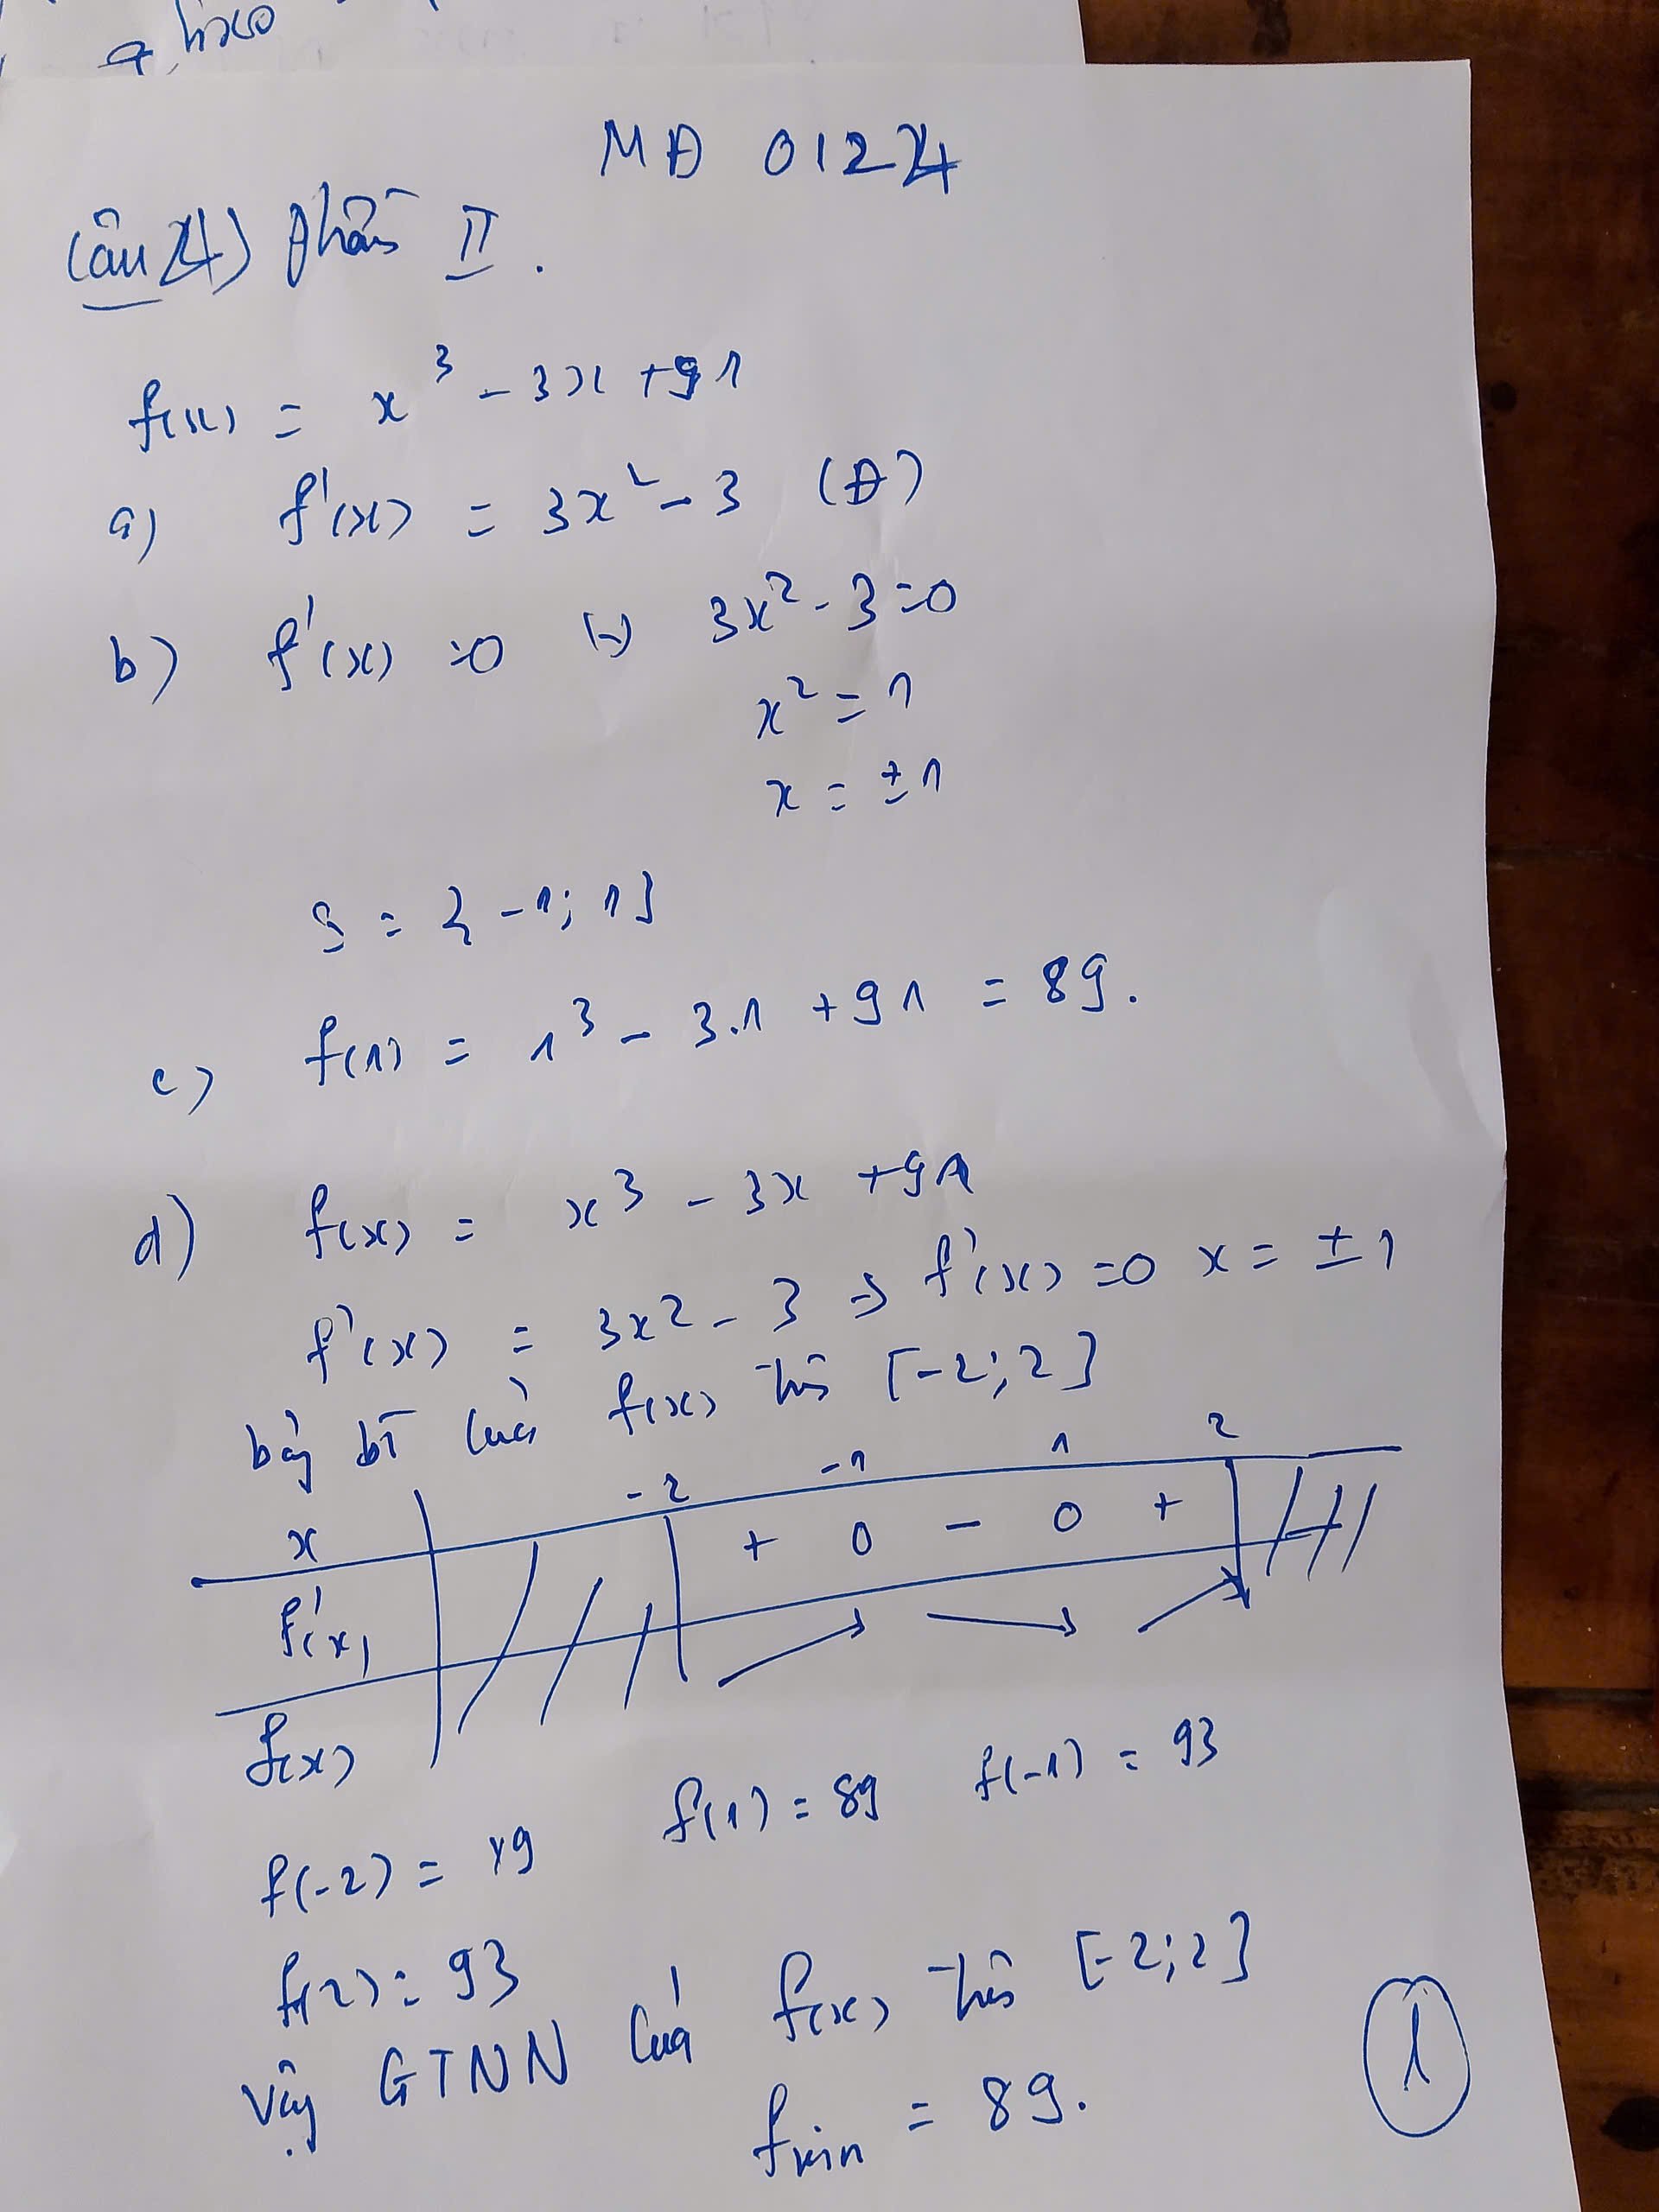 MĐ 0124
Câu 4) phần II.
f(x) = x³ - 3x + 91
a) f'(x) = 3x² - 3 (Đ)
b) f'(x) = 0 (=) 3x² - 3 = 0
x² = 1
x = ±1
S = {-1; 1}
c) f(1) = 1³ - 3.1 + 91 = 89.
d) f(x) = x³ - 3x + 91
f'(x) = 3x² - 3 => f'(x) = 0 x = ±1
bảng bt của f(x) trên [-2; 2]
x -2 -1 1 2
f'(x) + 0 - 0 +
f(x)
f(-2) = f(1) = 89 f(-1) = 93
f(2) = 93
Vậy GTNN của f(x) trên [-2; 2]
fmin = 89.
1